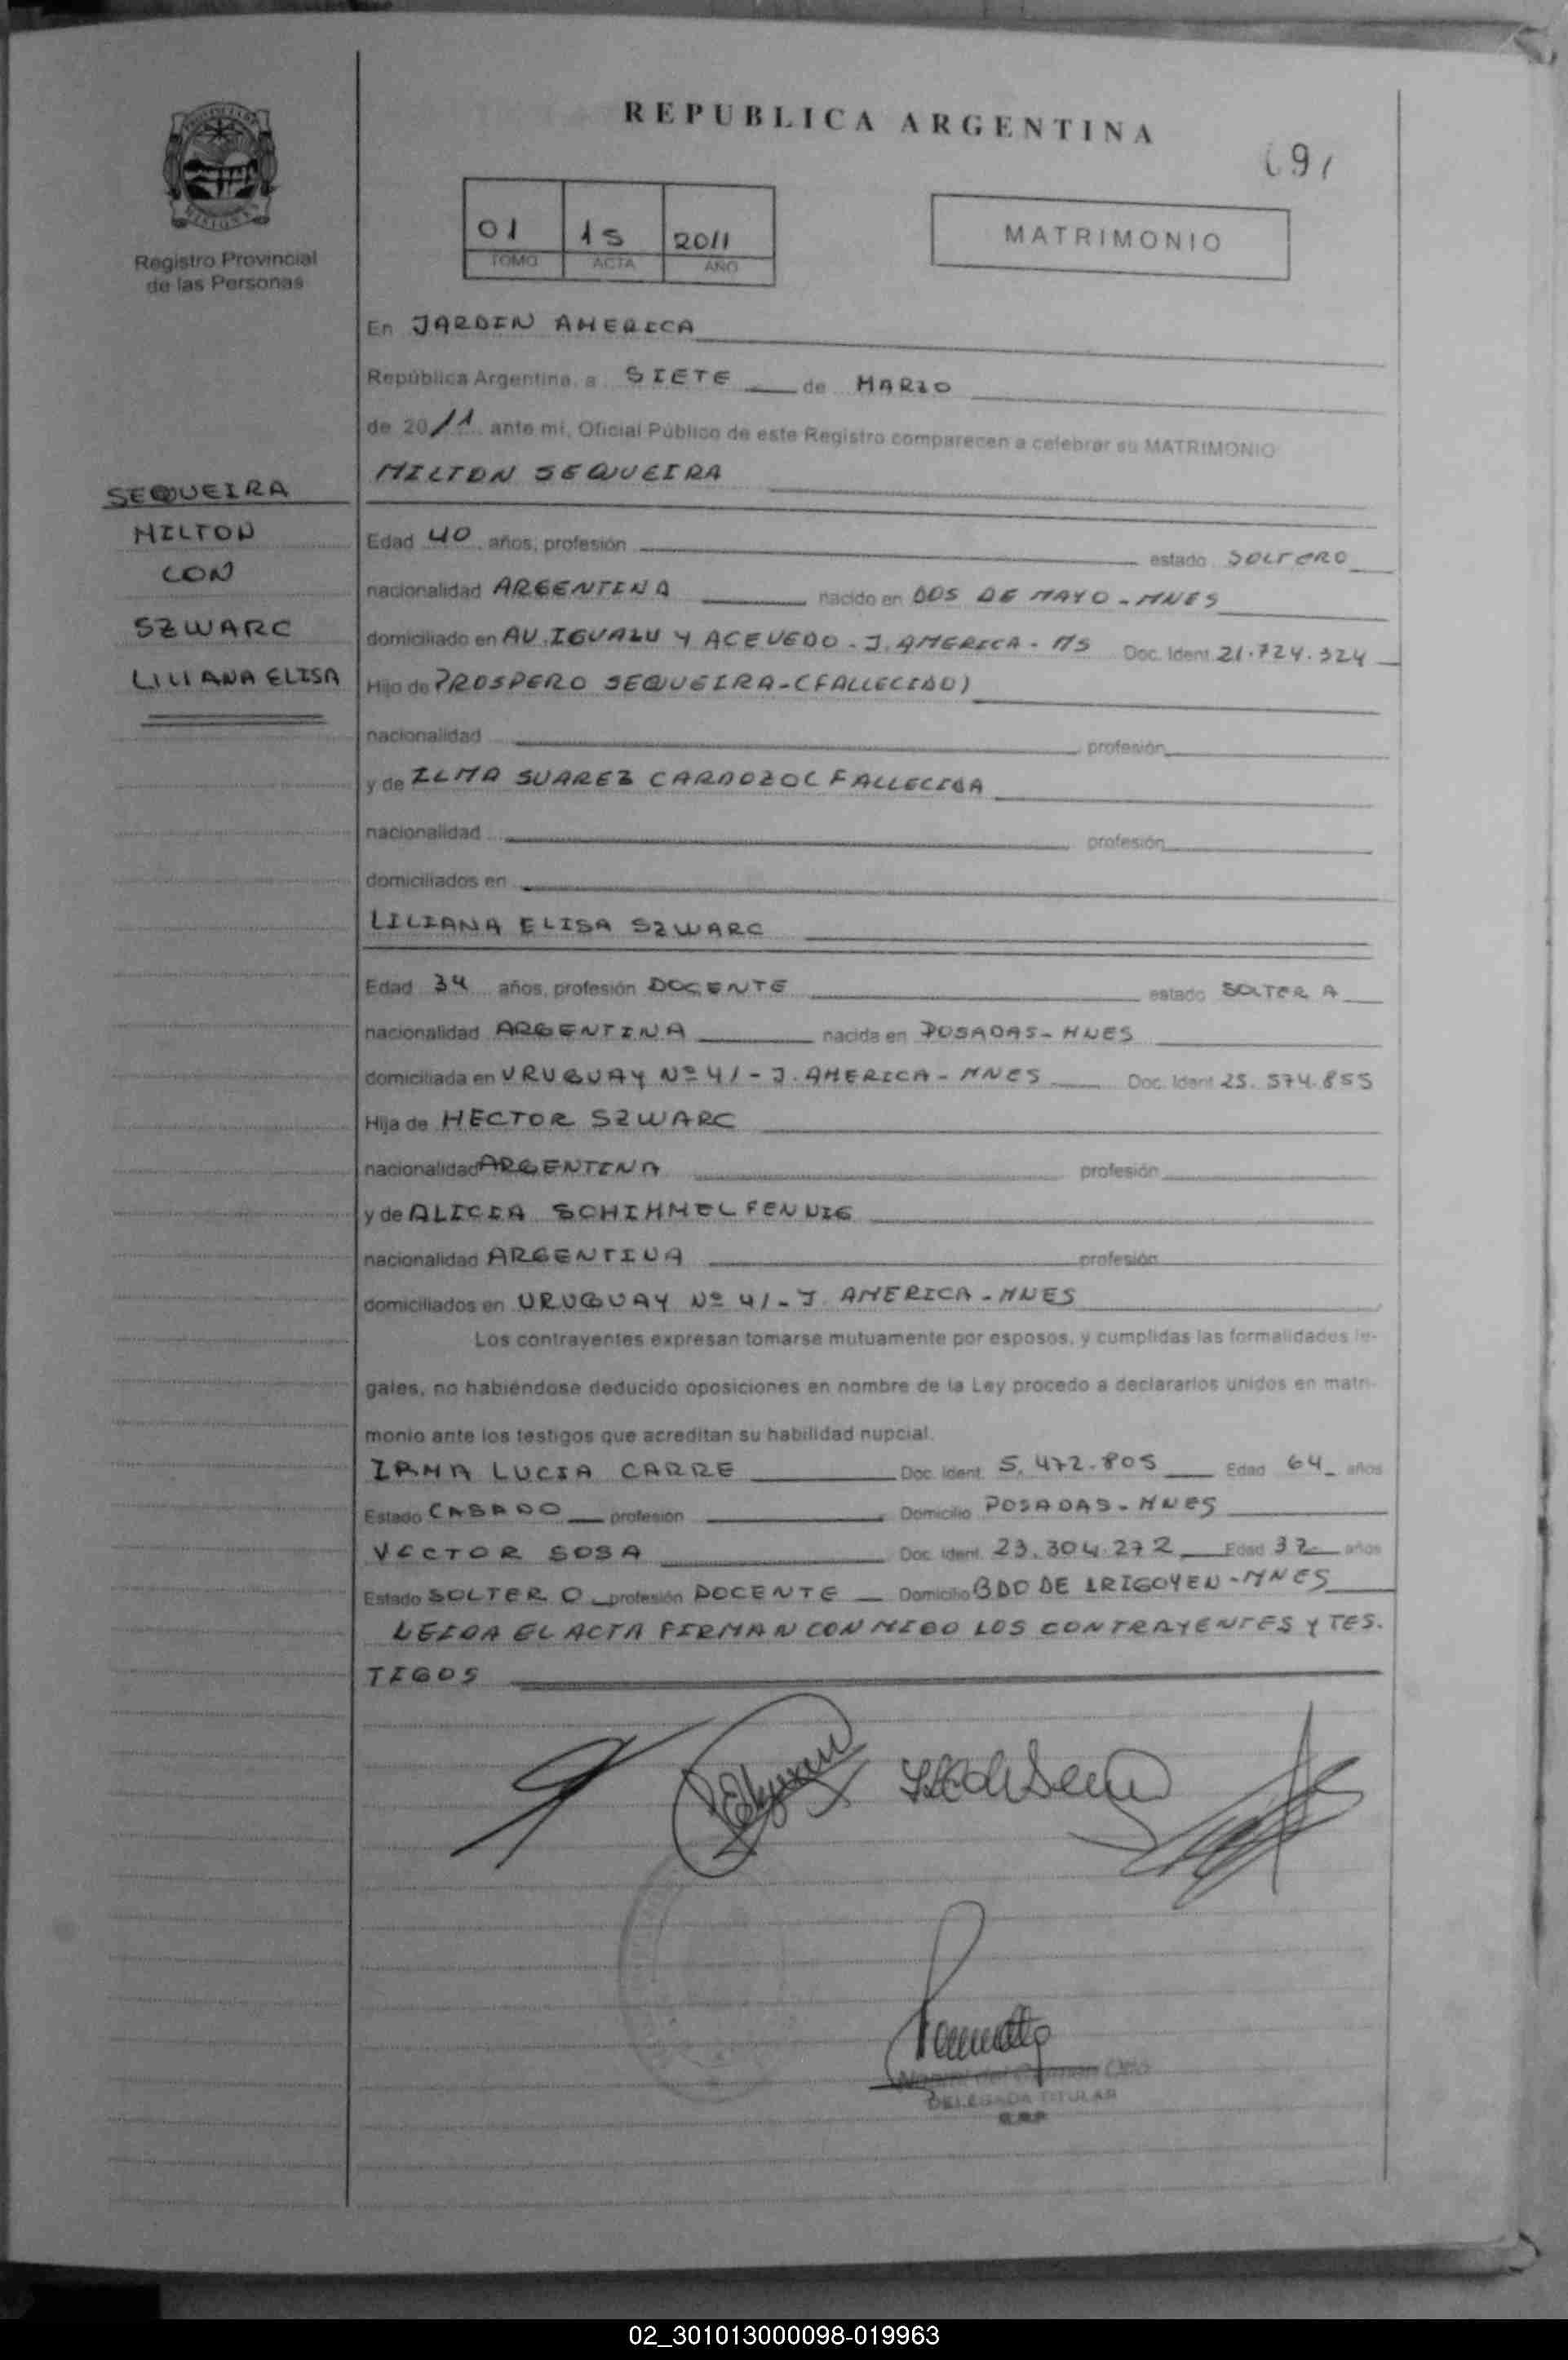 REPUBLICA ARGENTINA
Registro Provincial
de las Personas
01 15 2011
TOMO ACTA AÑO
MATRIMONIO
En JARDIN AMERICA
República Argentina, a SIETE de MARZO
de 2011 ante mi, Oficial Público de este Registro comparecen a celebrar su MATRIMONIO
MILTON SEQUEIRA
SEQUEIRA
MILTON
CON
SZWARC
LILIANA ELISA
Edad 40 años, profesión estado SOLTERO
nacionalidad ARGENTINA nacido en DOS DE MAYO - MNES
domiciliado en AV. IGUAZU Y ACEVEDO - J. AMERICA - MS Doc. Ident. 21.724.324
Hijo de PROSPERO SEQUEIRA - (FALLECIDO)
nacionalidad profesión
y de ILMA SUAREZ CARDOZO ( FALLECIDA
nacionalidad profesión
domiciliados en
LILIANA ELISA SZWARC
Edad 34 años, profesión DOCENTE estado SOLTERA
nacionalidad ARGENTINA nacida en POSADAS - MNES
domiciliada en URUGUAY Nº 41 - J. AMERICA - MNES Doc. Ident. 25.574.855
Hija de HECTOR SZWARC
nacionalidad ARGENTINA profesión
y de ALICIA SCHIMMELFENNIG
nacionalidad ARGENTINA profesión
domiciliados en URUGUAY Nº 41 - J. AMERICA - MNES
Los contrayentes expresan tomarse mutuamente por esposos, y cumplidas las formalidades le-
gales, no habiéndose deducido oposiciones en nombre de la Ley procedo a declararlos unidos en matri-
monio ante los testigos que acreditan su habilidad nupcial.
IRMA LUCIA CARRE Doc. Ident. 5.472.805 Edad 64 años
Estado CASADO profesión Domicilio POSADAS - MNES
VICTOR SOSA Doc. Ident. 23.304.272 Edad 37 años
Estado SOLTERO profesión DOCENTE Domicilio BDO DE IRIGOYEN - MNES
LEIDA EL ACTA FIRMAN CON MIGO LOS CONTRAYENTES Y TES.
TIGOS
del Carmen
DELEGADA TITULAR
02_301013000098-019963